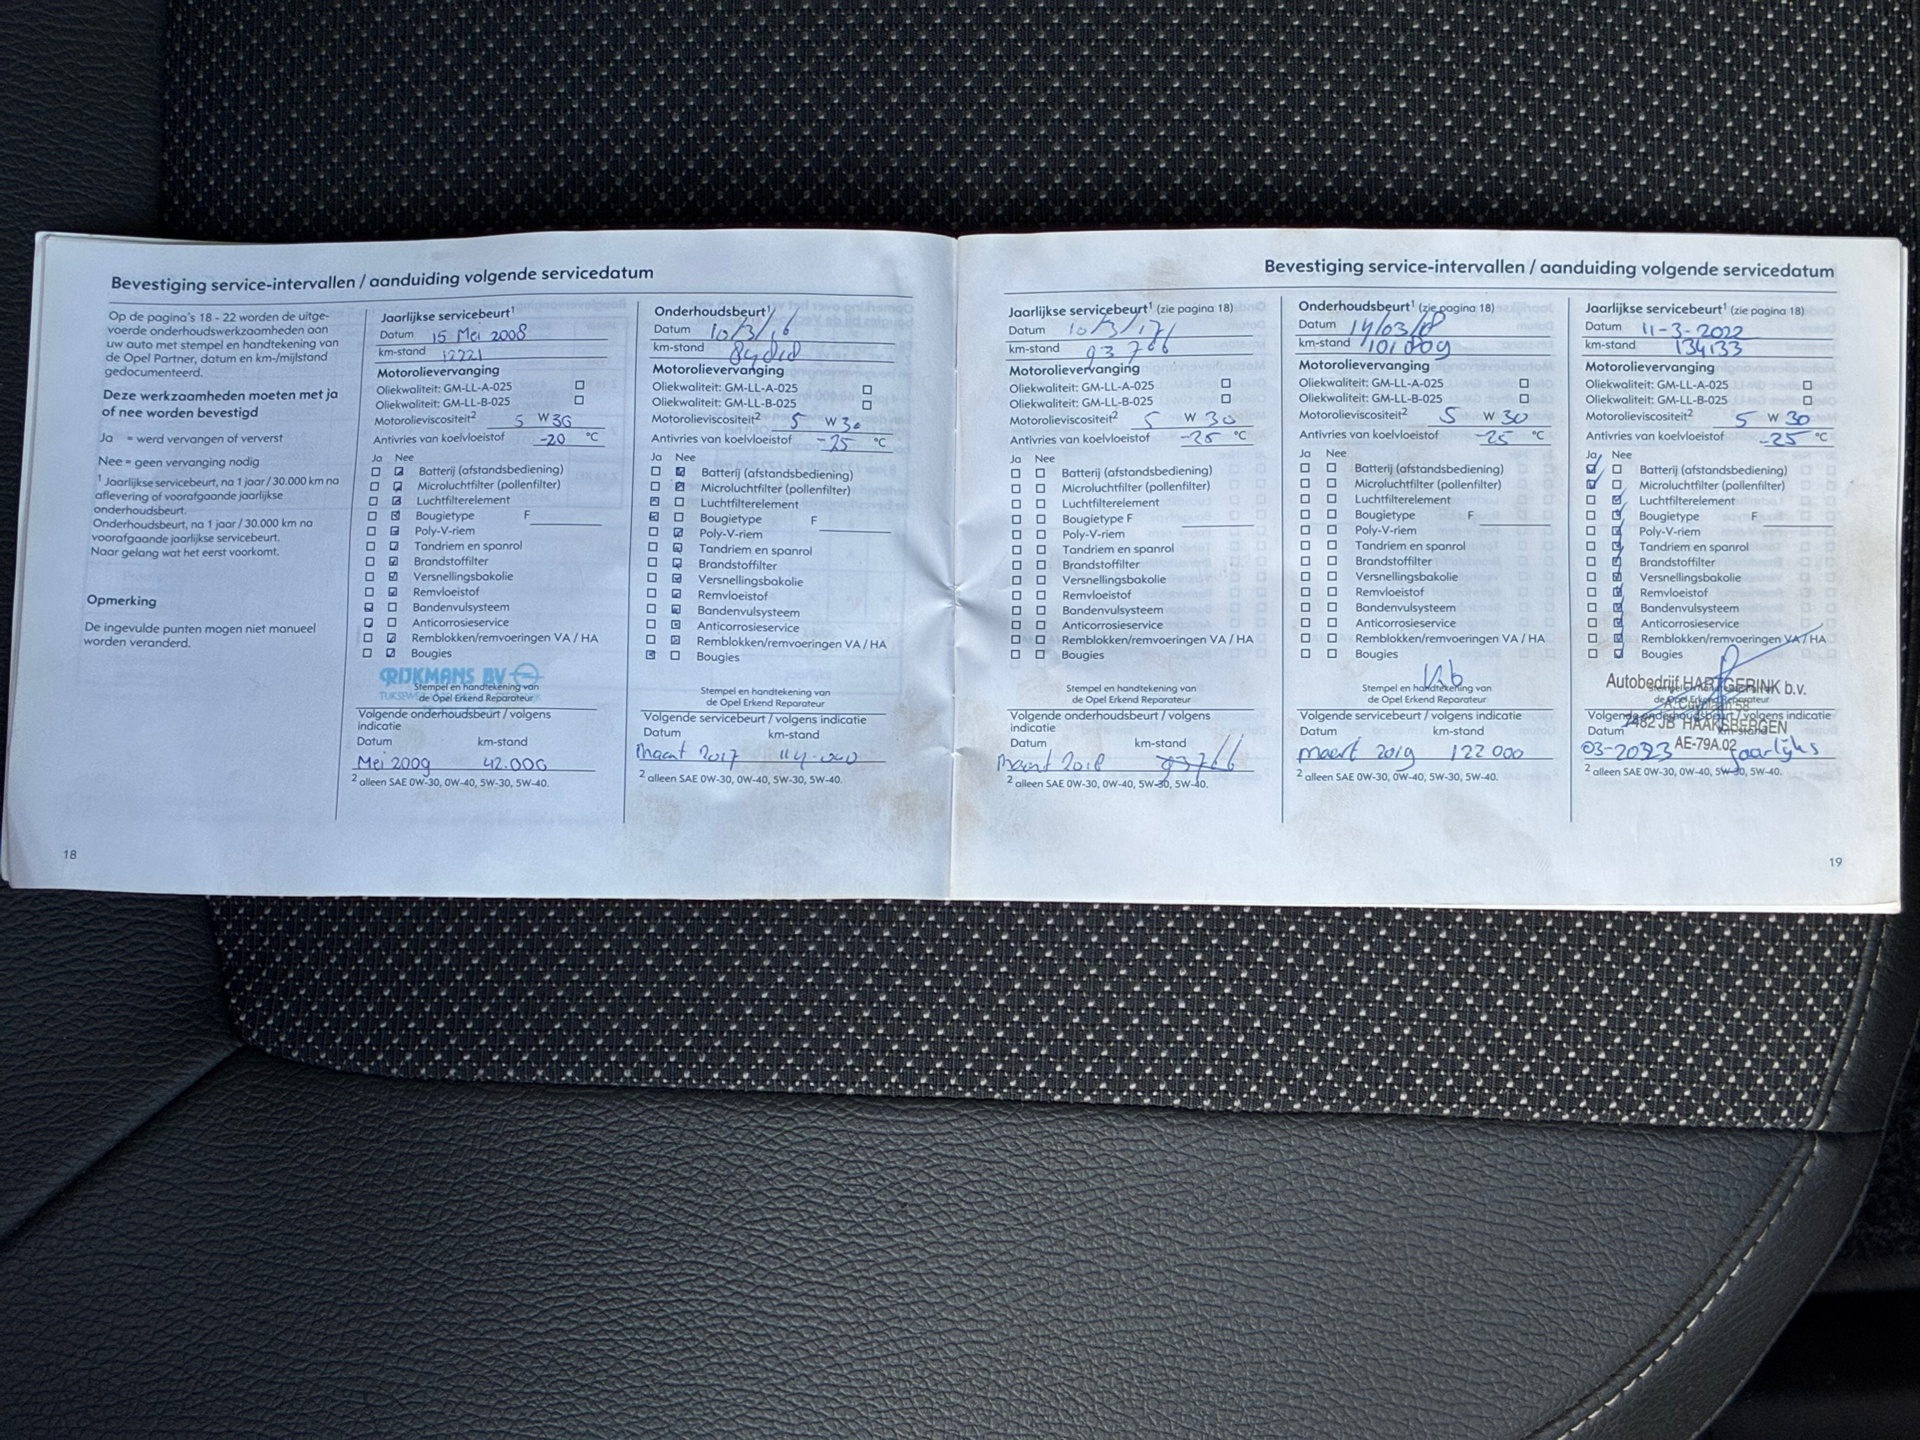 Bevestiging service-intervallen / aanduiding volgende servicedatum
Op de pagina's 18 - 22 worden de uitge-
voerde onderhoudswerkzaamheden aan
uw auto met stempel en handtekening van
de Opel Partner, datum en km-/mijlstand
gedocumenteerd.
Deze werkzaamheden moeten met ja
of nee worden bevestigd
Ja = werd vervangen of ververst
Nee = geen vervanging nodig
1 Jaarlijkse servicebeurt, na 1 jaar / 30.000 km na
aflevering of voorafgaande jaarlijkse
onderhoudsbeurt.
Onderhoudsbeurt, na 1 jaar / 30.000 km na
voorafgaande jaarlijkse servicebeurt.
Naar gelang wat het eerst voorkomt.
Opmerking
De ingevulde punten mogen niet manueel
worden veranderd.
18
Jaarlijkse servicebeurt1
Datum 15 Mei 2008
km-stand 12221
Motorolievervanging
Oliekwaliteit: GM-LL-A-025
Oliekwaliteit: GM-LL-B-025
Motorolieviscositeit2 5 W 30
Antivries van koelvloeistof -20 °C
Ja Nee
Batterij (afstandsbediening)
Microluchtfilter (pollenfilter)
Luchtfilterelement
Bougietype F
Poly-V-riem
Tandriem en spanrol
Brandstoffilter
Versnellingsbakolie
Remvloeistof
Bandenvulsysteem
Anticorrosieservice
Remblokken/remvoeringen VA / HA
Bougies
RIJKMANS BV
Stempel en handtekening van
de Opel Erkend Reparateur
Volgende onderhoudsbeurt / volgens
indicatie
Datum km-stand
Mei 2009 42.000
2 alleen SAE 0W-30, 0W-40, 5W-30, 5W-40.
Onderhoudsbeurt1
Datum 10/3/16
km-stand
Motorolievervanging
Oliekwaliteit: GM-LL-A-025
Oliekwaliteit: GM-LL-B-025
Motorolieviscositeit2 5 W 30
Antivries van koelvloeistof -25 °C
Ja Nee
Batterij (afstandsbediening)
Microluchtfilter (pollenfilter)
Luchtfilterelement
Bougietype F
Poly-V-riem
Tandriem en spanrol
Brandstoffilter
Versnellingsbakolie
Remvloeistof
Bandenvulsysteem
Anticorrosieservice
Remblokken/remvoeringen VA / HA
Bougies
Stempel en handtekening van
de Opel Erkend Reparateur
Volgende servicebeurt / volgens indicatie
Datum km-stand
Maart 2017 114.000
2 alleen SAE 0W-30, 0W-40, 5W-30, 5W-40.
Bevestiging service-intervallen / aanduiding volgende servicedatum
Jaarlijkse servicebeurt1 (zie pagina 18)
Datum 10/3/17
km-stand 93766
Motorolievervanging
Oliekwaliteit: GM-LL-A-025
Oliekwaliteit: GM-LL-B-025
Motorolieviscositeit2 5 W 30
Antivries van koelvloeistof -25 °C
Ja Nee
Batterij (afstandsbediening)
Microluchtfilter (pollenfilter)
Luchtfilterelement
Bougietype F
Poly-V-riem
Tandriem en spanrol
Brandstoffilter
Versnellingsbakolie
Remvloeistof
Bandenvulsysteem
Anticorrosieservice
Remblokken/remvoeringen VA / HA
Bougies
Stempel en handtekening van
de Opel Erkend Reparateur
Volgende onderhoudsbeurt / volgens
indicatie
Datum km-stand
Maart 2018 93766
2 alleen SAE 0W-30, 0W-40, 5W-30, 5W-40.
Onderhoudsbeurt1 (zie pagina 18)
Datum 14/03/18
km-stand 101009
Motorolievervanging
Oliekwaliteit: GM-LL-A-025
Oliekwaliteit: GM-LL-B-025
Motorolieviscositeit2 5 W 30
Antivries van koelvloeistof -25 °C
Ja Nee
Batterij (afstandsbediening)
Microluchtfilter (pollenfilter)
Luchtfilterelement
Bougietype F
Poly-V-riem
Tandriem en spanrol
Brandstoffilter
Versnellingsbakolie
Remvloeistof
Bandenvulsysteem
Anticorrosieservice
Remblokken/remvoeringen VA / HA
Bougies
Stempel en handtekening van
de Opel Erkend Reparateur
Volgende servicebeurt / volgens indicatie
Datum km-stand
maart 2019 122 000
2 alleen SAE 0W-30, 0W-40, 5W-30, 5W-40.
Jaarlijkse servicebeurt1 (zie pagina 18)
Datum 11-3-2022
km-stand 134133
Motorolievervanging
Oliekwaliteit: GM-LL-A-025
Oliekwaliteit: GM-LL-B-025
Motorolieviscositeit2 5 W 30
Antivries van koelvloeistof -25 °C
Ja Nee
Batterij (afstandsbediening)
Microluchtfilter (pollenfilter)
Luchtfilterelement
Bougietype F
Poly-V-riem
Tandriem en spanrol
Brandstoffilter
Versnellingsbakolie
Remvloeistof
Bandenvulsysteem
Anticorrosieservice
Remblokken/remvoeringen VA / HA
Bougies
Autobedrijf HARTGERINK b.v.
Stempel en handtekening van
de Opel Erkend Reparateur
Volgende onderhoudsbeurt / volgens indicatie
7482 JB HAAKSBERGEN
Datum km-stand
AE-79A.02
03-2023 Jaarlijks
2 alleen SAE 0W-30, 0W-40, 5W-30, 5W-40.
19